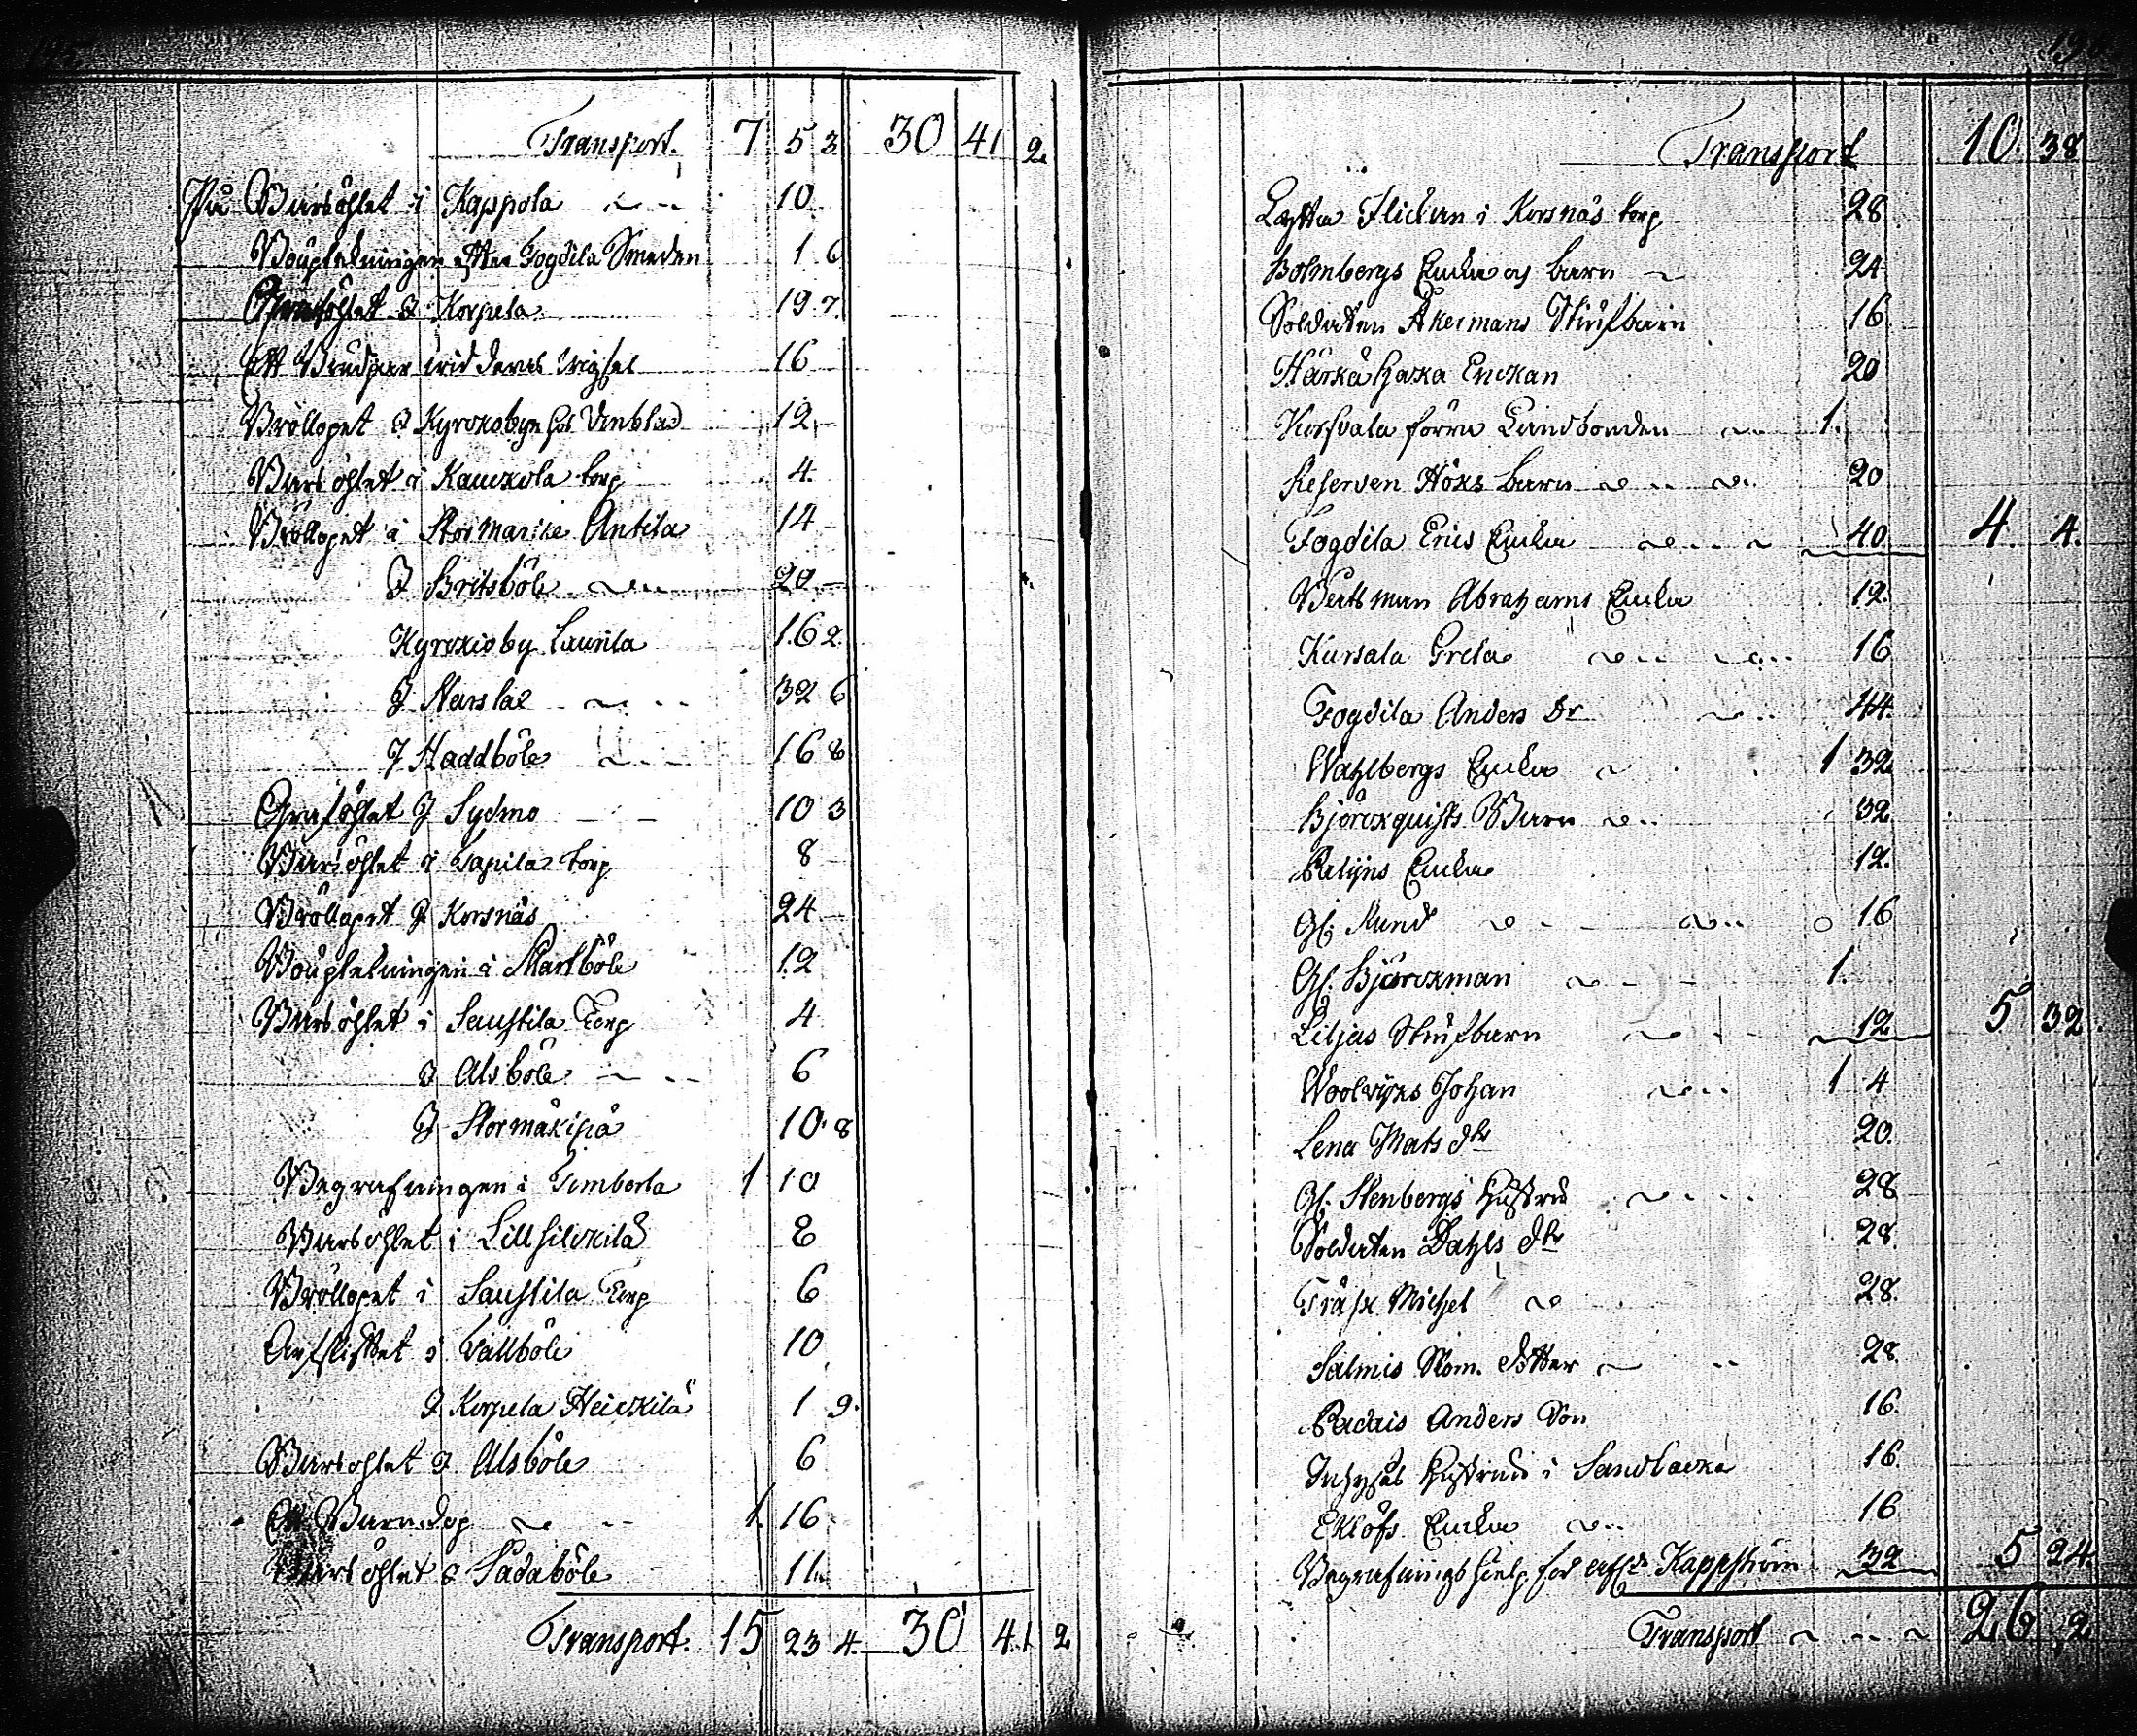 Transport. 7 5 3 30 41 2
På Barnsöhlet i Kappola 10
Bouptekningen efter Fogdila Smeden 1 6
Grafföhlet I Korpela 19 7
Ett Brudpar wid deras wigsel 16
Bröllopet I Kyrckobyn hos Vinblad 12
Barnsöhlet i Kauckola torp 4
Bröllopet i Stormarike Antila 14
I Britsböle 20
Kyrckioby Laurila 16 2
I Narslax 32 6
I Haddböle 16 8
Graföhlet I Sydmo 10 3
Barnsöhlet i Tapila torp 8
Bröllopet I Korsnäs 24
Bouptekningen i Martböle 12
Barnsöhlet i Saustila Torp 4
I Alsböle 6
I Stormäkipä 10 8
Begrafningen i Timberla 1 10
Barnsöhlet i Lill hilckilä 8
Bröllopet i Saustila Torp 6
Arfskiftet i Vällböle 10
I Korpela Heickilä 1 9
Barnsöhlet I Alsböle 6
Ett Barn dop 1 16
Barnsöhlet I Sadaböle 11
Transport. 15 23 4 30 41 2
Transport 10 38
Lytta Flickan i Korsnäs torp 28
Holmbergs Encka och barn 24
Soldaten Åkermans Stiufbarn 16
Härkähaka Enckan 20
Karsvala förra Landbonden 1
Reserven Höks barn 20
Fogdila Erics Encka 40 4 4
Båtsman Abrahams Encka 12
Karsala Greta 16
Fogdila Anders Dr 44
Wahlbergs Encka 1 32
Björckquists Barn 32
Palijns Encka 12
Gl. Mund 16
Gl. Björckman 1
Liljas Stiufbarn 12 5 32
Woolrijks Johan 1 4
Lena Mats dtr 20
Gl. Stenbergs hustru 28
Soldaten Dahls dtr 28
Träsk Michel 28
Salmis Slom. dotter 28
Padais Anders Son 16
hustru i Sandbacka 16
Eklöfs Encka 16
Begrafningshielp för Kappström 32 5 24
Transport 26 2